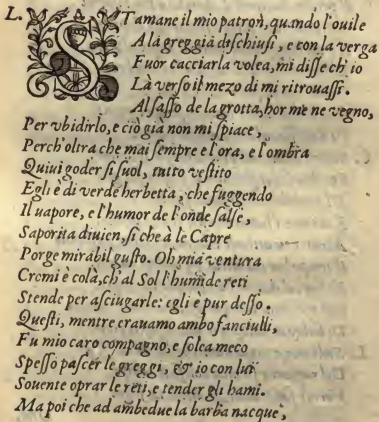 L. STamane il mio patron, quando l'ouile
A la greggia dischiusi, e con la verga
Fuor cacciarla volea, mi disse ch'io
Là verso il mezo di mi ritrouassi.
Al sasso de la grotta, hor me ne vegno,
Per vbidirlo, e ciò già non mi spiace,
Perch'oltra che mai sempre e l'ora, e l'ombra
Quiui goder si suol, tutto vestito
Egli è di verde herbetta, che fuggendo
Il uapore, e l'humor de l'onde salse,
Saporita diuien, si che à le Capre
Porge mirabil gusto. Oh mia ventura
Cremi è colà, ch'al Sol l'humide reti
Stende per asciugarle: egli è pur desso.
Questi, mentre erauamo ambo fanciulli,
Fu mio caro compagno, e solea meco
Spesso pascer le greggi, & io con lui
Souente oprar le reti, e tender gli hami.
Ma poi che ad ambedue la barba nacque,